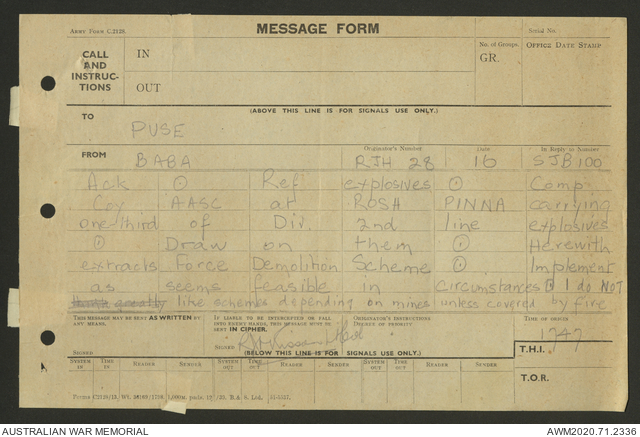 Army Form C.2128.
MESSAGE FORM
Serial No.
CALL AND INSTRUC- TIONS
IN
OUT
No. of Groups.
GR.
OFFICE DATE STAMP
(ABOVE THIS LINE IS FOR SIGNALS USE ONLY.)
TO
PUSE
FROM
Originator's Number
Date
In Reply to Number
BABA RJH 28 16 SJB100
Ack ⊙ Ref explosives ⊙ Comp
Coy AASC at ROSH PINNA carrying
one-third of Div. 2nd line explosives
⊙ Draw on them ⊙ Herewith
extracts Force Demolition Scheme ⊙ Implement
as seems feasible in circumstances ⊙ I do NOT
greatly like schemes depending on mines unless covered by fire
THIS MESSAGE MAY BE SENT AS WRITTEN BY ANY MEANS.
IF LIABLE TO BE INTERCEPTED OR FALL INTO ENEMY HANDS, THIS MESSAGE MUST BE SENT IN CIPHER.
ORIGINATOR'S INSTRUCTIONS
DEGREE OF PRIORITY
TIME OF ORIGIN
1747
SIGNED
SIGNED
(BELOW THIS LINE IS FOR SIGNALS USE ONLY.)
T.H.I.
SYSTEM IN
TIME IN
READER
SENDER
SYSTEM OUT
TIME OUT
READER
SENDER
SYSTEM OUT
TIME OUT
READER
SENDER
T.O.R.
AUSTRALIAN WAR MEMORIAL
AWM2020.71.2336